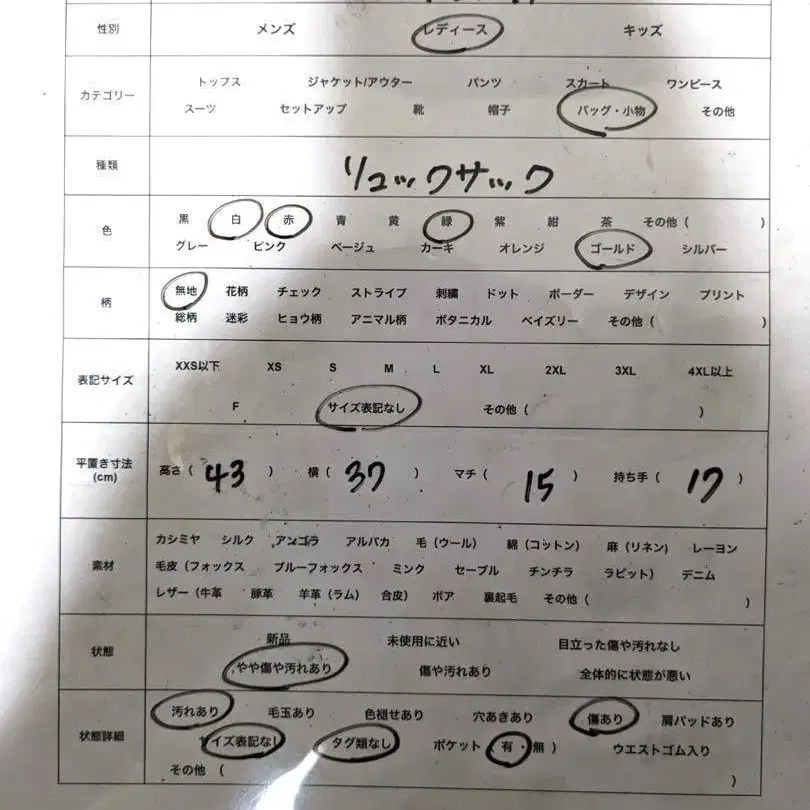 性別 メンズ レディース キッズ
カテゴリー トップス ジャケット/アウター パンツ スカート ワンピース
スーツ セットアップ 靴 帽子 バッグ・小物 その他
種類 リュックサック
色 黒 白 赤 青 黄 緑 紫 紺 茶 その他 ( )
グレー ピンク ベージュ カーキ オレンジ ゴールド シルバー
柄 無地 花柄 チェック ストライプ 刺繍 ドット ボーダー デザイン プリント
総柄 迷彩 ヒョウ柄 アニマル柄 ボタニカル ペイズリー その他 ( )
表記サイズ XXS以下 XS S M L XL 2XL 3XL 4XL以上
F サイズ表記なし その他 ( )
平置き寸法 (cm) 高さ ( 43 ) 横 ( 37 ) マチ ( 15 ) 持ち手 ( 17 )
素材 カシミヤ シルク アンゴラ アルパカ 毛 (ウール) 綿 (コットン) 麻 (リネン) レーヨン
毛皮 (フォックス ブルーフォックス ミンク セーブル チンチラ ラビット) デニム
レザー (牛革 豚革 羊革 (ラム) 合皮) ボア 裏起毛 その他 ( )
状態 新品 未使用に近い 目立った傷や汚れなし
やや傷や汚れあり 傷や汚れあり 全体的に状態が悪い
状態詳細 汚れあり 毛玉あり 色褪せあり 穴あきあり 傷あり 肩パッドあり
サイズ表記なし タグ類なし ポケット ( 有 ・ 無 ) ウエストゴム入り
その他 ( )